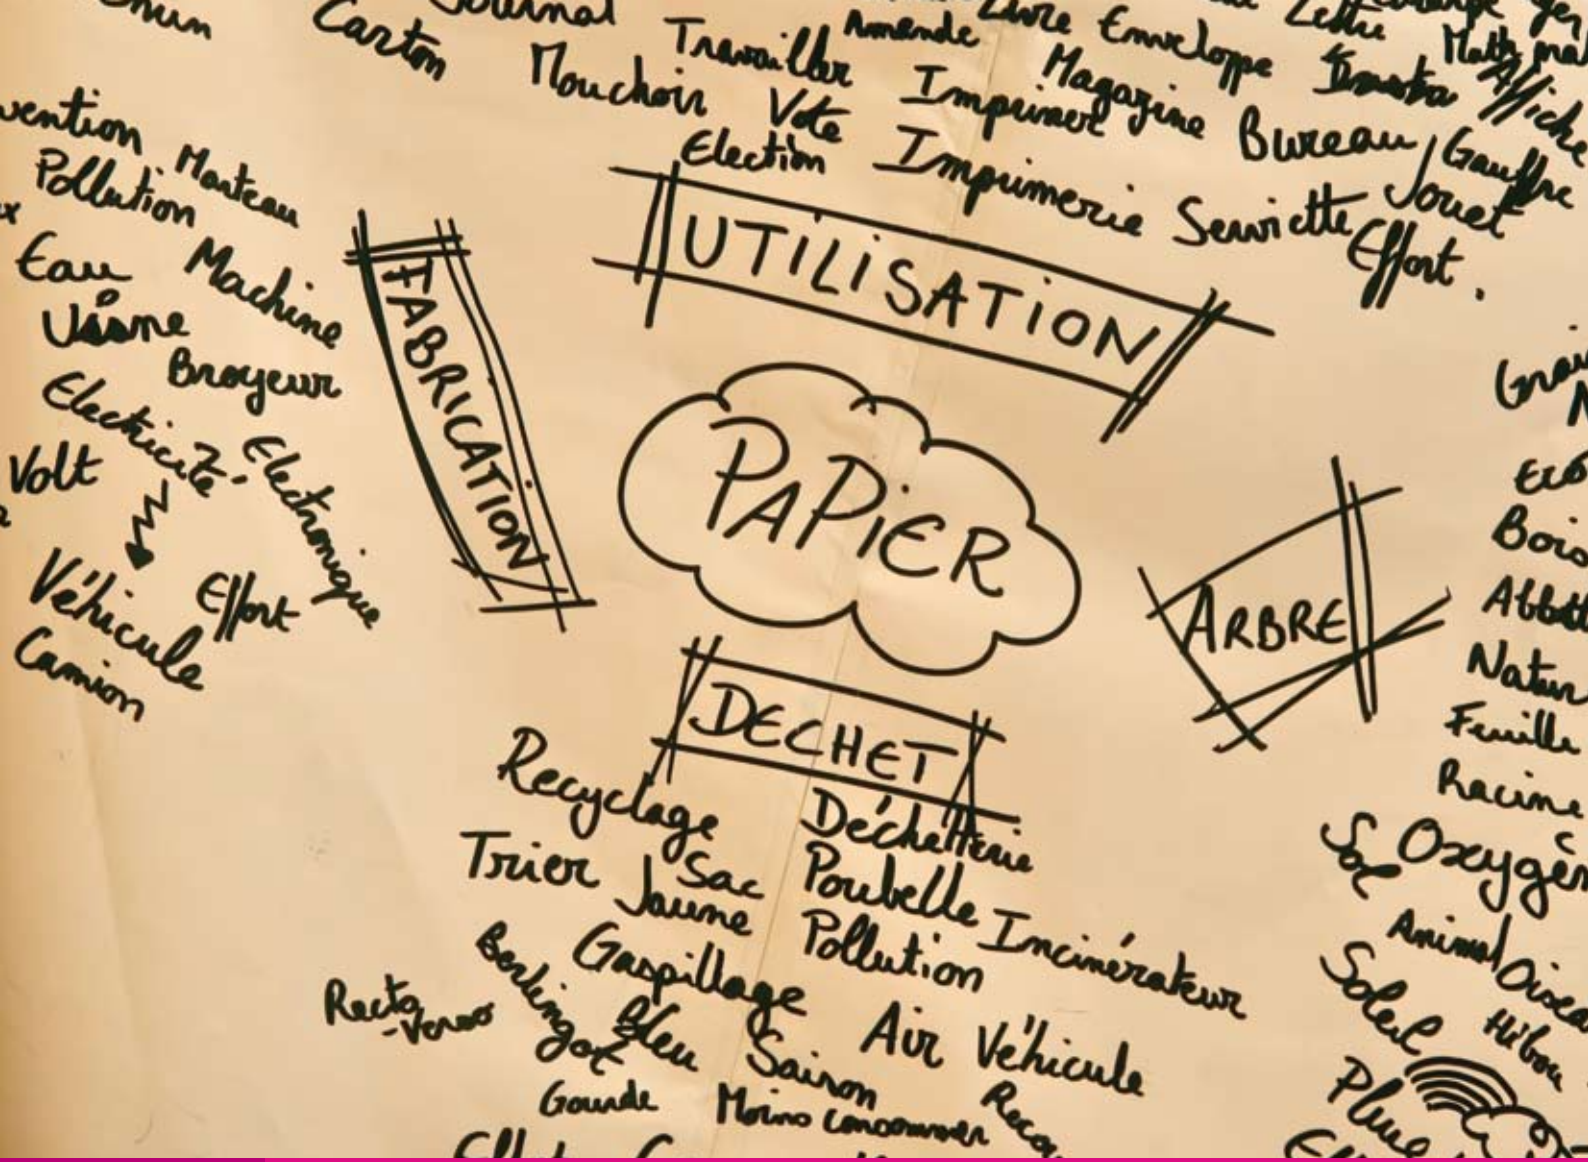 Carton
Journal
Travailler
Amende
Livre
Enveloppe
Mouchoir
Vote
Imprimer
Magazine
Bureau
Affiche
Election
Imprimerie
Serviette
Jouet
Gauffre
Effort.
UTILISATION
Marteau
Pollution
Eau
Machine
Usine
Broyeur
Electricité
Electronique
Volt
Véhicule
Effort
Camion
FABRICATION
PAPiER
ARBRE
Bois
Feuille
Racine
Sol
Animal
Soleil
Hibou
DECHET
Recyclage
Déchetterie
Trier
Sac
Jaune
Poubelle
Incinérateur
Pollution
Gaspillage
Berlingot
Recto
-Verso
Bleu
Air
Véhicule
Saison
Gourde
Moins consommer